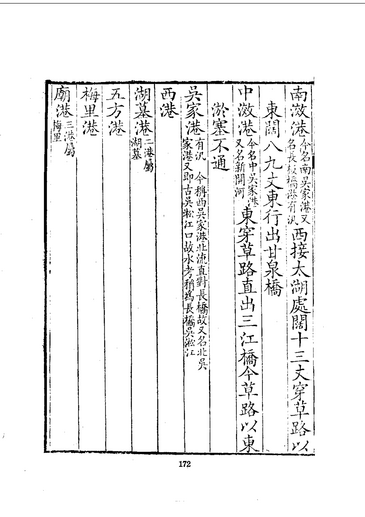 南漵港今名南吳家港又名長板橋港有汛西接太湖處闊十三丈穿草路以
東闊八九丈東行出甘泉橋
中漵港今名中吳家港又名新開河東穿草路直出三江橋今草路以東
淤塞不通
吳家港有汛 今稱西吳家港北流直對長橋故又名北吳家港又即古吳淞江口故水考稍爲長橋吳淞江
西港
湖墓港二港屬湖墓
五方港
梅里港
廟港三港屬梅里
172